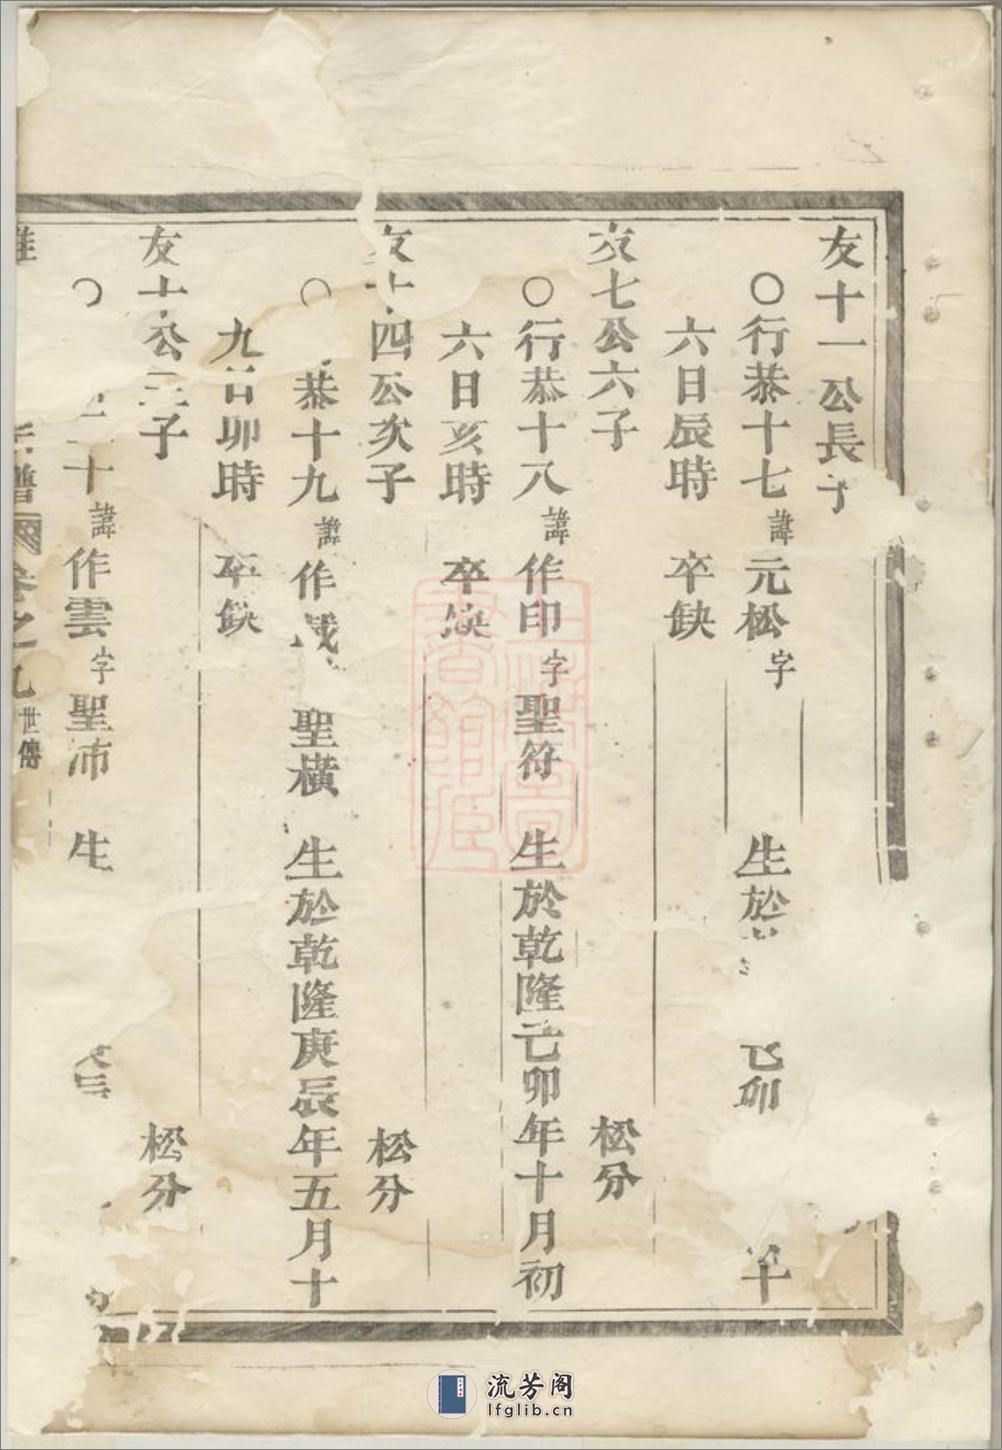 友十一公長子
○行恭十七諱元松字 生於 乙卯 十
六日辰時 卒缺
友七公六子 松分
○行恭十八諱作印字聖符 生於乾隆己卯年十月初
六日亥時 卒缺
友十四公次子 松分
○ 恭十九諱作 聖橫 生於乾隆庚辰年五月十
九日卯時 卒缺
友十 公三子 松分
○ 二十諱作雲字聖沛 生
氏譜 卷之九 世傳
上海圖書館藏
流芳阁
lfglib.cn